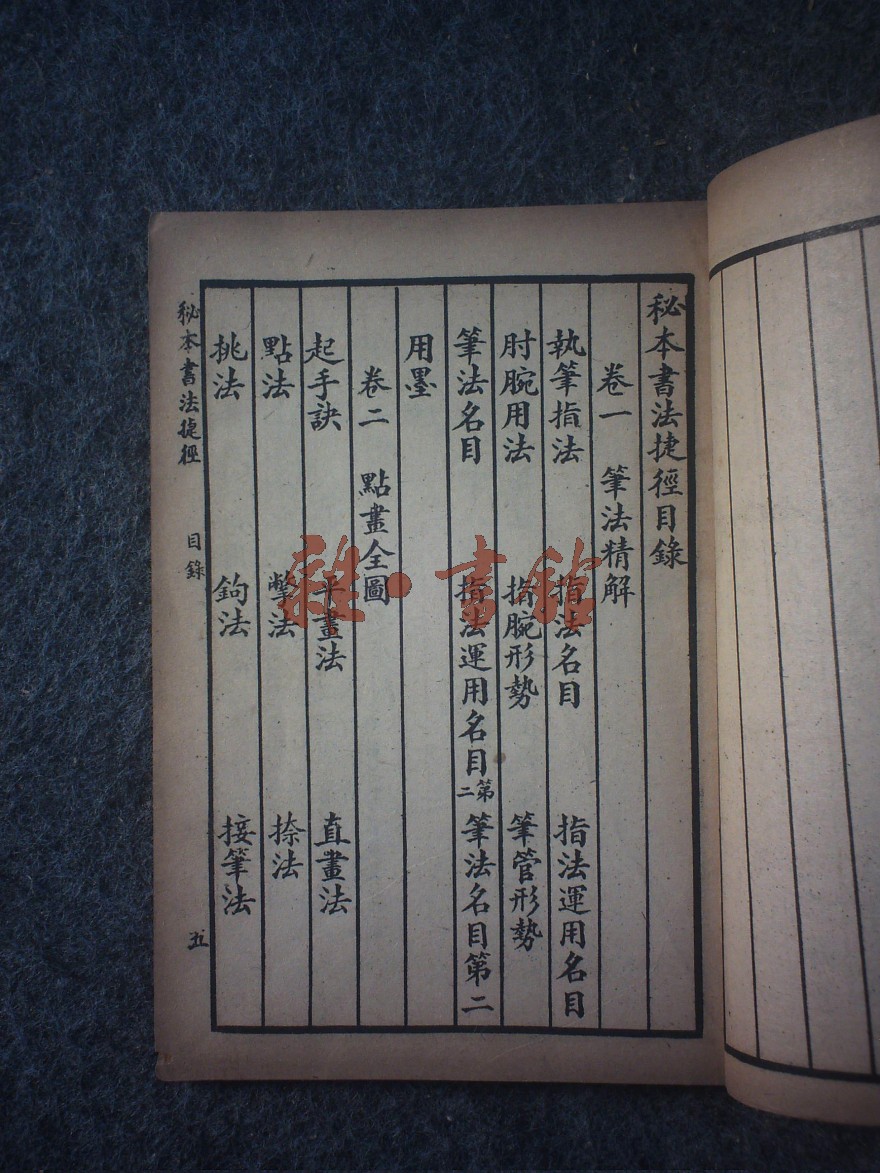 秘本書法捷徑目錄
卷一　筆法精解
執筆指法　指法名目　指法運用名目
肘腕用法　指腕形勢　筆管形勢
筆法名目　指法運用名目第二　筆法名目第二
用墨
卷二　點畫全圖
起手訣　平畫法　直畫法
點法　撆法　捺法
挑法　鉤法　接筆法
秘本書法捷徑　目錄　五
雜·書館